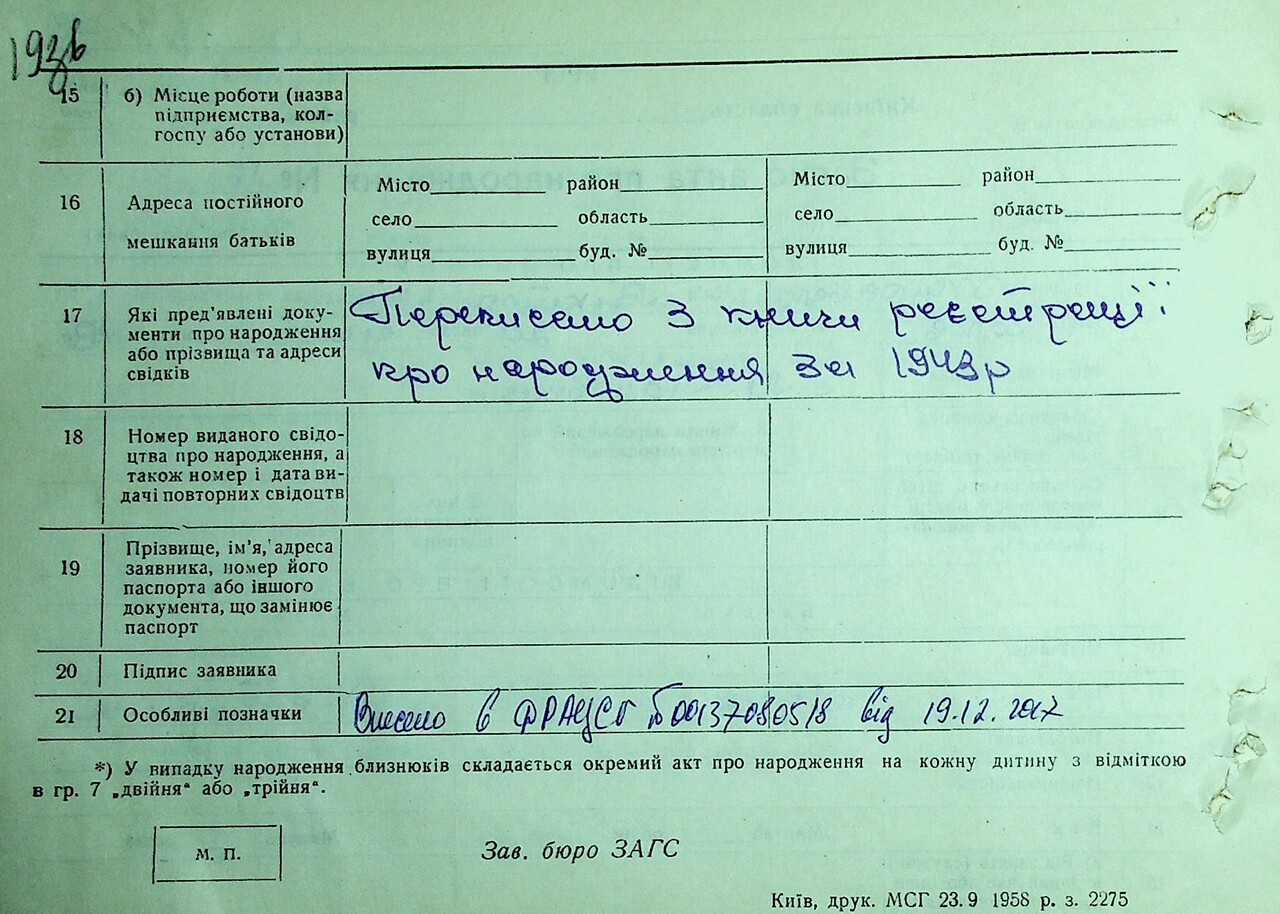 193в
15 б) Місце роботи (назва
підприємства, кол-
госпу або установи)
16 Адреса постійного
мешкання батьків
Місто район Місто район
село область село область
вулиця буд. № вулиця буд. №
17 Які пред’явлені доку-
менти про народження
або прізвища та адреси
свідків
Переписано з книги реєстрації
про народження за 1943р
18 Номер виданого свідо-
цтва про народження, а
також номер і дата ви-
дачі повторних свідоцтв
19 Прізвище, ім’я, адреса
заявника, номер його
паспорта або іншого
документа, що замінює
паспорт
20 Підпис заявника
21 Особливі позначки Внесено в ФРАЦСГ №00137080518 від 19.12.2017
*) У випадку народження близнюків складається окремий акт про народження на кожну дитину з відміткою
в гр. 7 „двійня“ або „трійня“.
М. П. Зав. бюро ЗАГС
Київ, друк. МСГ 23.9 1958 р. з. 2275